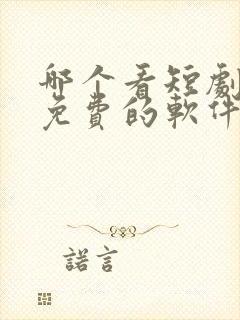 哪个看短劇
免費的軟件
諾言